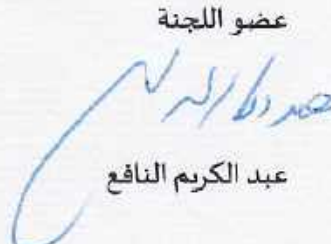 عضو اللجنة
عبد الكريم النافع